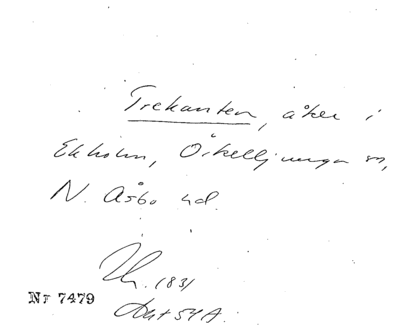 Trekanten, åker i
Ekholm, Örkelljunga sn,
N. Åsbo hd.
1831
Akt 54A.
Nr 7479